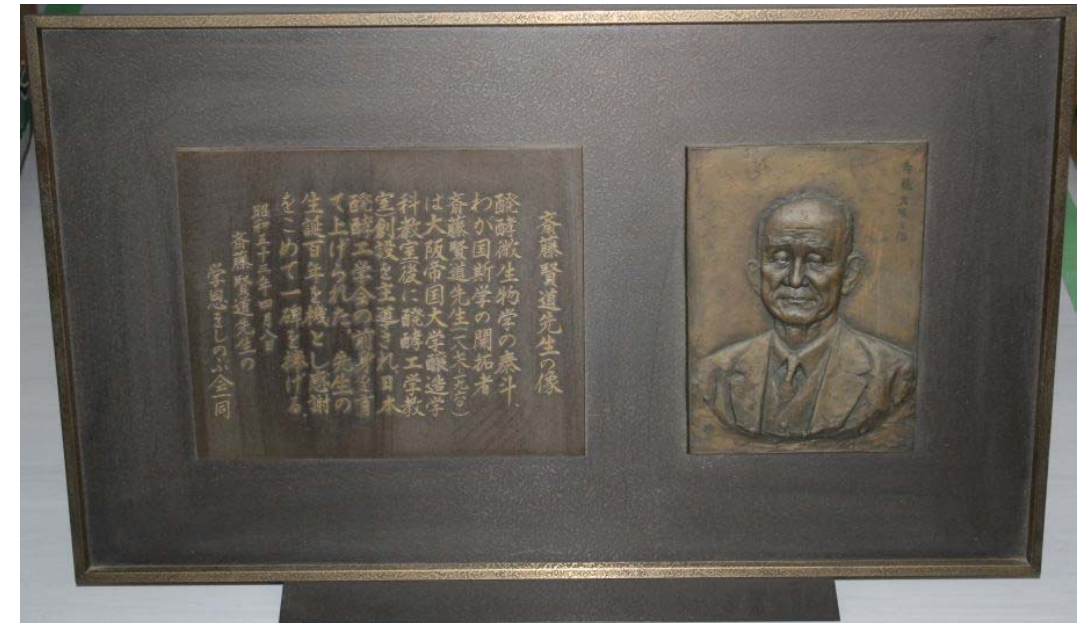 斎藤賢道先生の像
醗酵微生物学の泰斗、
わが国斯学の開拓者
斎藤賢道先生(一八七八—一九六〇)
は大阪帝国大学醸造学
科教室後に醗酵工学教
室創設を主導され、日本
醗酵工学会の前身を育
て上げられた。先生の
生誕百年を機とし感謝
をこめて一碑を捧げる。
昭和五十三年四月八日
斎藤賢道先生の
学恩をしのぶ会一同